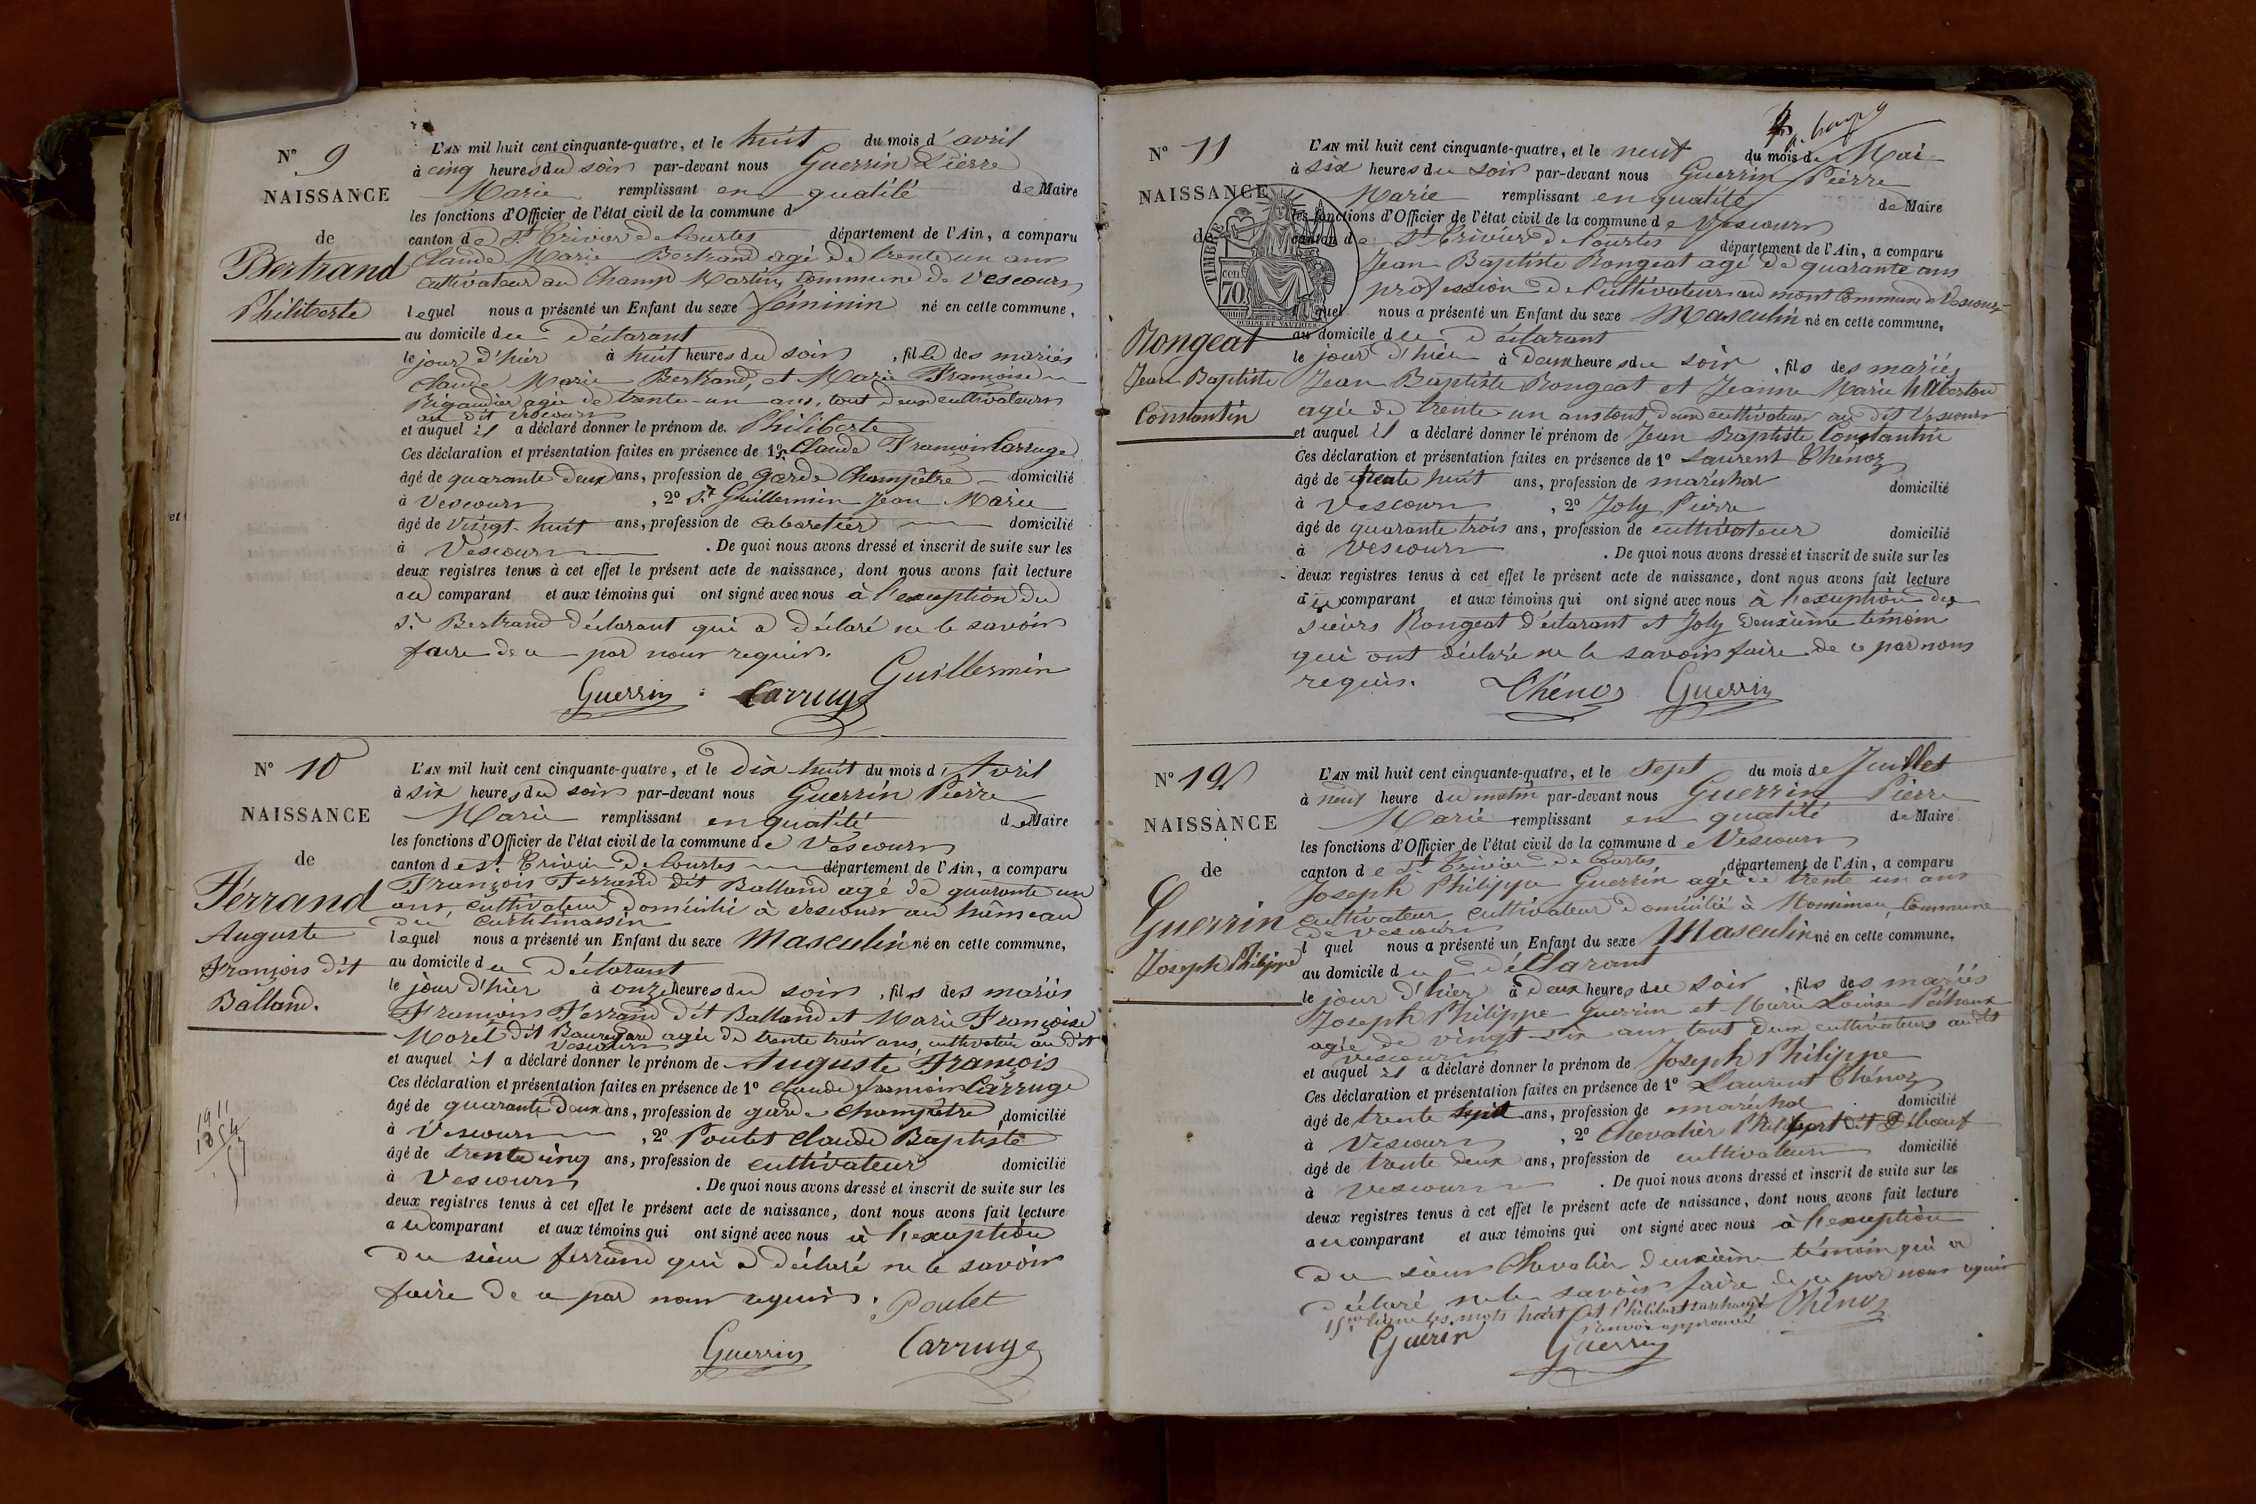 N° 9
NAISSANCE
de
Bertrand
Philiberte
L'AN mil huit cent cinquante-quatre, et le huit du mois d'avril
à cinq heures du soir par-devant nous Guerrin Pierre
Marie remplissant en qualité de Maire
les fonctions d'Officier de l'état civil de la commune d
canton de St Trivier de Courtes département de l'Ain, a comparu
Claude Marie Bertrand agé de trente un ans
cultivateur au Champ Martin, commune de Vescours
lequel nous a présenté un Enfant du sexe féminin né en cette commune,
au domicile du déclarant
le jour d'hier à huit heures du soir, fille des mariés
Claude Marie Bertrand, et Marie Françoise
Rigaudier agée de trente-un ans, tout deux cultivateurs
au dit Vescours
et auquel il a déclaré donner le prénom de Philiberte
Ces déclaration et présentation faites en présence de 1° Claude François Carruge
âgé de quarante deux ans, profession de garde Champêtre domicilié
à Vescours, 2° Sr Guillermin Jean Marie
âgé de vingt-huit ans, profession de cabaretier domicilié
à Vescours. De quoi nous avons dressé et inscrit de suite sur les
deux registres tenus à cet effet le présent acte de naissance, dont nous avons fait lecture
au comparant et aux témoins qui ont signé avec nous à l'exception du
Sr Bertrand déclarant qui a déclaré ne le savoir
faire de ce par nous requis.
Guillermin
Guerrin Carruge
N° 10
NAISSANCE
de
Férrand
Auguste
François dit
Balland.
19 11
1854
L'AN mil huit cent cinquante-quatre, et le dix huit du mois d'Avril
à six heures du soir par-devant nous Guerrin Pierre
Marie remplissant en qualité de Maire
les fonctions d'Officier de l'état civil de la commune de Vescours
canton de St Trivier de Courtes département de l'Ain, a comparu
François Ferrand dit Balland agé de quarante un
ans, cultivateur domicilié à Vescours au hameau
du
lequel nous a présenté un Enfant du sexe Masculin né en cette commune,
au domicile du déclarant
le jour d'hier à onze heures du soir, fils des mariés
François Ferrand dit Balland et Marie Françoise
Morel dit Bauregard agée de trente trois ans, cultivateur au dit
Vescours
et auquel il a déclaré donner le prénom de Auguste François
Ces déclaration et présentation faites en présence de 1° Claude françois Carruge
âgé de quarante deux ans, profession de garde champêtre domicilié
à Vescours, 2° Poulet Claude Baptiste
âgé de trente cinq ans, profession de cultivateur domicilié
à Vescours. De quoi nous avons dressé et inscrit de suite sur les
deux registres tenus à cet effet le présent acte de naissance, dont nous avons fait lecture
au comparant et aux témoins qui ont signé avec nous à l'exception
du sieur ferrand qui a déclaré ne le savoir
faire de ce par nous requis.
Poulet
Guerrin Carruge
N° 11
NAISSANCE
de
Rongeat
Jean Baptiste
Constantin
TIMBRE
cent
70
L'AN mil huit cent cinquante-quatre, et le neuf du mois de Mai
à six heures du soir par-devant nous Guerrin Pierre
Marie remplissant en qualité de Maire
les fonctions d'Officier de l'état civil de la commune de Vescours
canton de St Trivier de Courtes département de l'Ain, a comparu
Jean Baptiste Rongeat agé de quarante ans
profession de Cultivateur au mont Commune de Vescours
lequel nous a présenté un Enfant du sexe Masculin né en cette commune,
au domicile du déclarant
le jour d'hier à deux heures du soir, fils des mariés
Jean Baptiste Rongeat et Jeanne Marie
agée de trente un ans tout deux cultivateurs au dit Vescours
et auquel il a déclaré donner le prénom de Jean Baptiste Constantin
Ces déclaration et présentation faites en présence de 1° Laurent Thénoz
âgé de trente huit ans, profession de maréchal domicilié
à Vescours, 2° Joly Pierre
âgé de quarante trois ans, profession de cultivateur domicilié
à Vescours. De quoi nous avons dressé et inscrit de suite sur les
deux registres tenus à cet effet le présent acte de naissance, dont nous avons fait lecture
au comparant et aux témoins qui ont signé avec nous à l'exception des
sieurs Rongeat déclarant et Joly deuxième témoin
qui ont déclaré ne le savoir faire de ce par nous
requis. Thénoz Guerrin
N° 12
NAISSANCE
de
Guerrin
Joseph Philippe
L'AN mil huit cent cinquante-quatre, et le sept du mois de Juillet
à neuf heure du matin par-devant nous Guerrin Pierre
Marie remplissant en qualité de Maire
les fonctions d'Officier de l'état civil de la commune de Vescours
canton de St Trivier de Courtes département de l'Ain, a comparu
Joseph Philippe Guerrin agé de trente un ans
cultivateur, cultivateur domicilié à Commune
de Vescours
l quel nous a présenté un Enfant du sexe Masculin né en cette commune,
au domicile du déclarant
le jour d'hier à deux heures du soir, fils des mariés
Joseph Philippe Guerrin et Marie Louise
agée de vingt six ans tout deux cultivateurs audit
Vescours
et auquel il a déclaré donner le prénom de Joseph Philippe
Ces déclaration et présentation faites en présence de 1° Laurent Thénoz
âgé de trente huit ans, profession de maréchal domicilié
à Vescours, 2° Chevalier Philibert dit Débœuf
âgé de trente deux ans, profession de cultivateur domicilié
à Vescours. De quoi nous avons dressé et inscrit de suite sur les
deux registres tenus à cet effet le présent acte de naissance, dont nous avons fait lecture
au comparant et aux témoins qui ont signé avec nous à l'exception
du sieur Chevalier deuxième témoin qui a
déclaré ne le savoir faire de ce par nous requis
15me ligne les mots huit et Philibert surchargé
renvoi approuvé
Thénoz
Guérin Guerrin